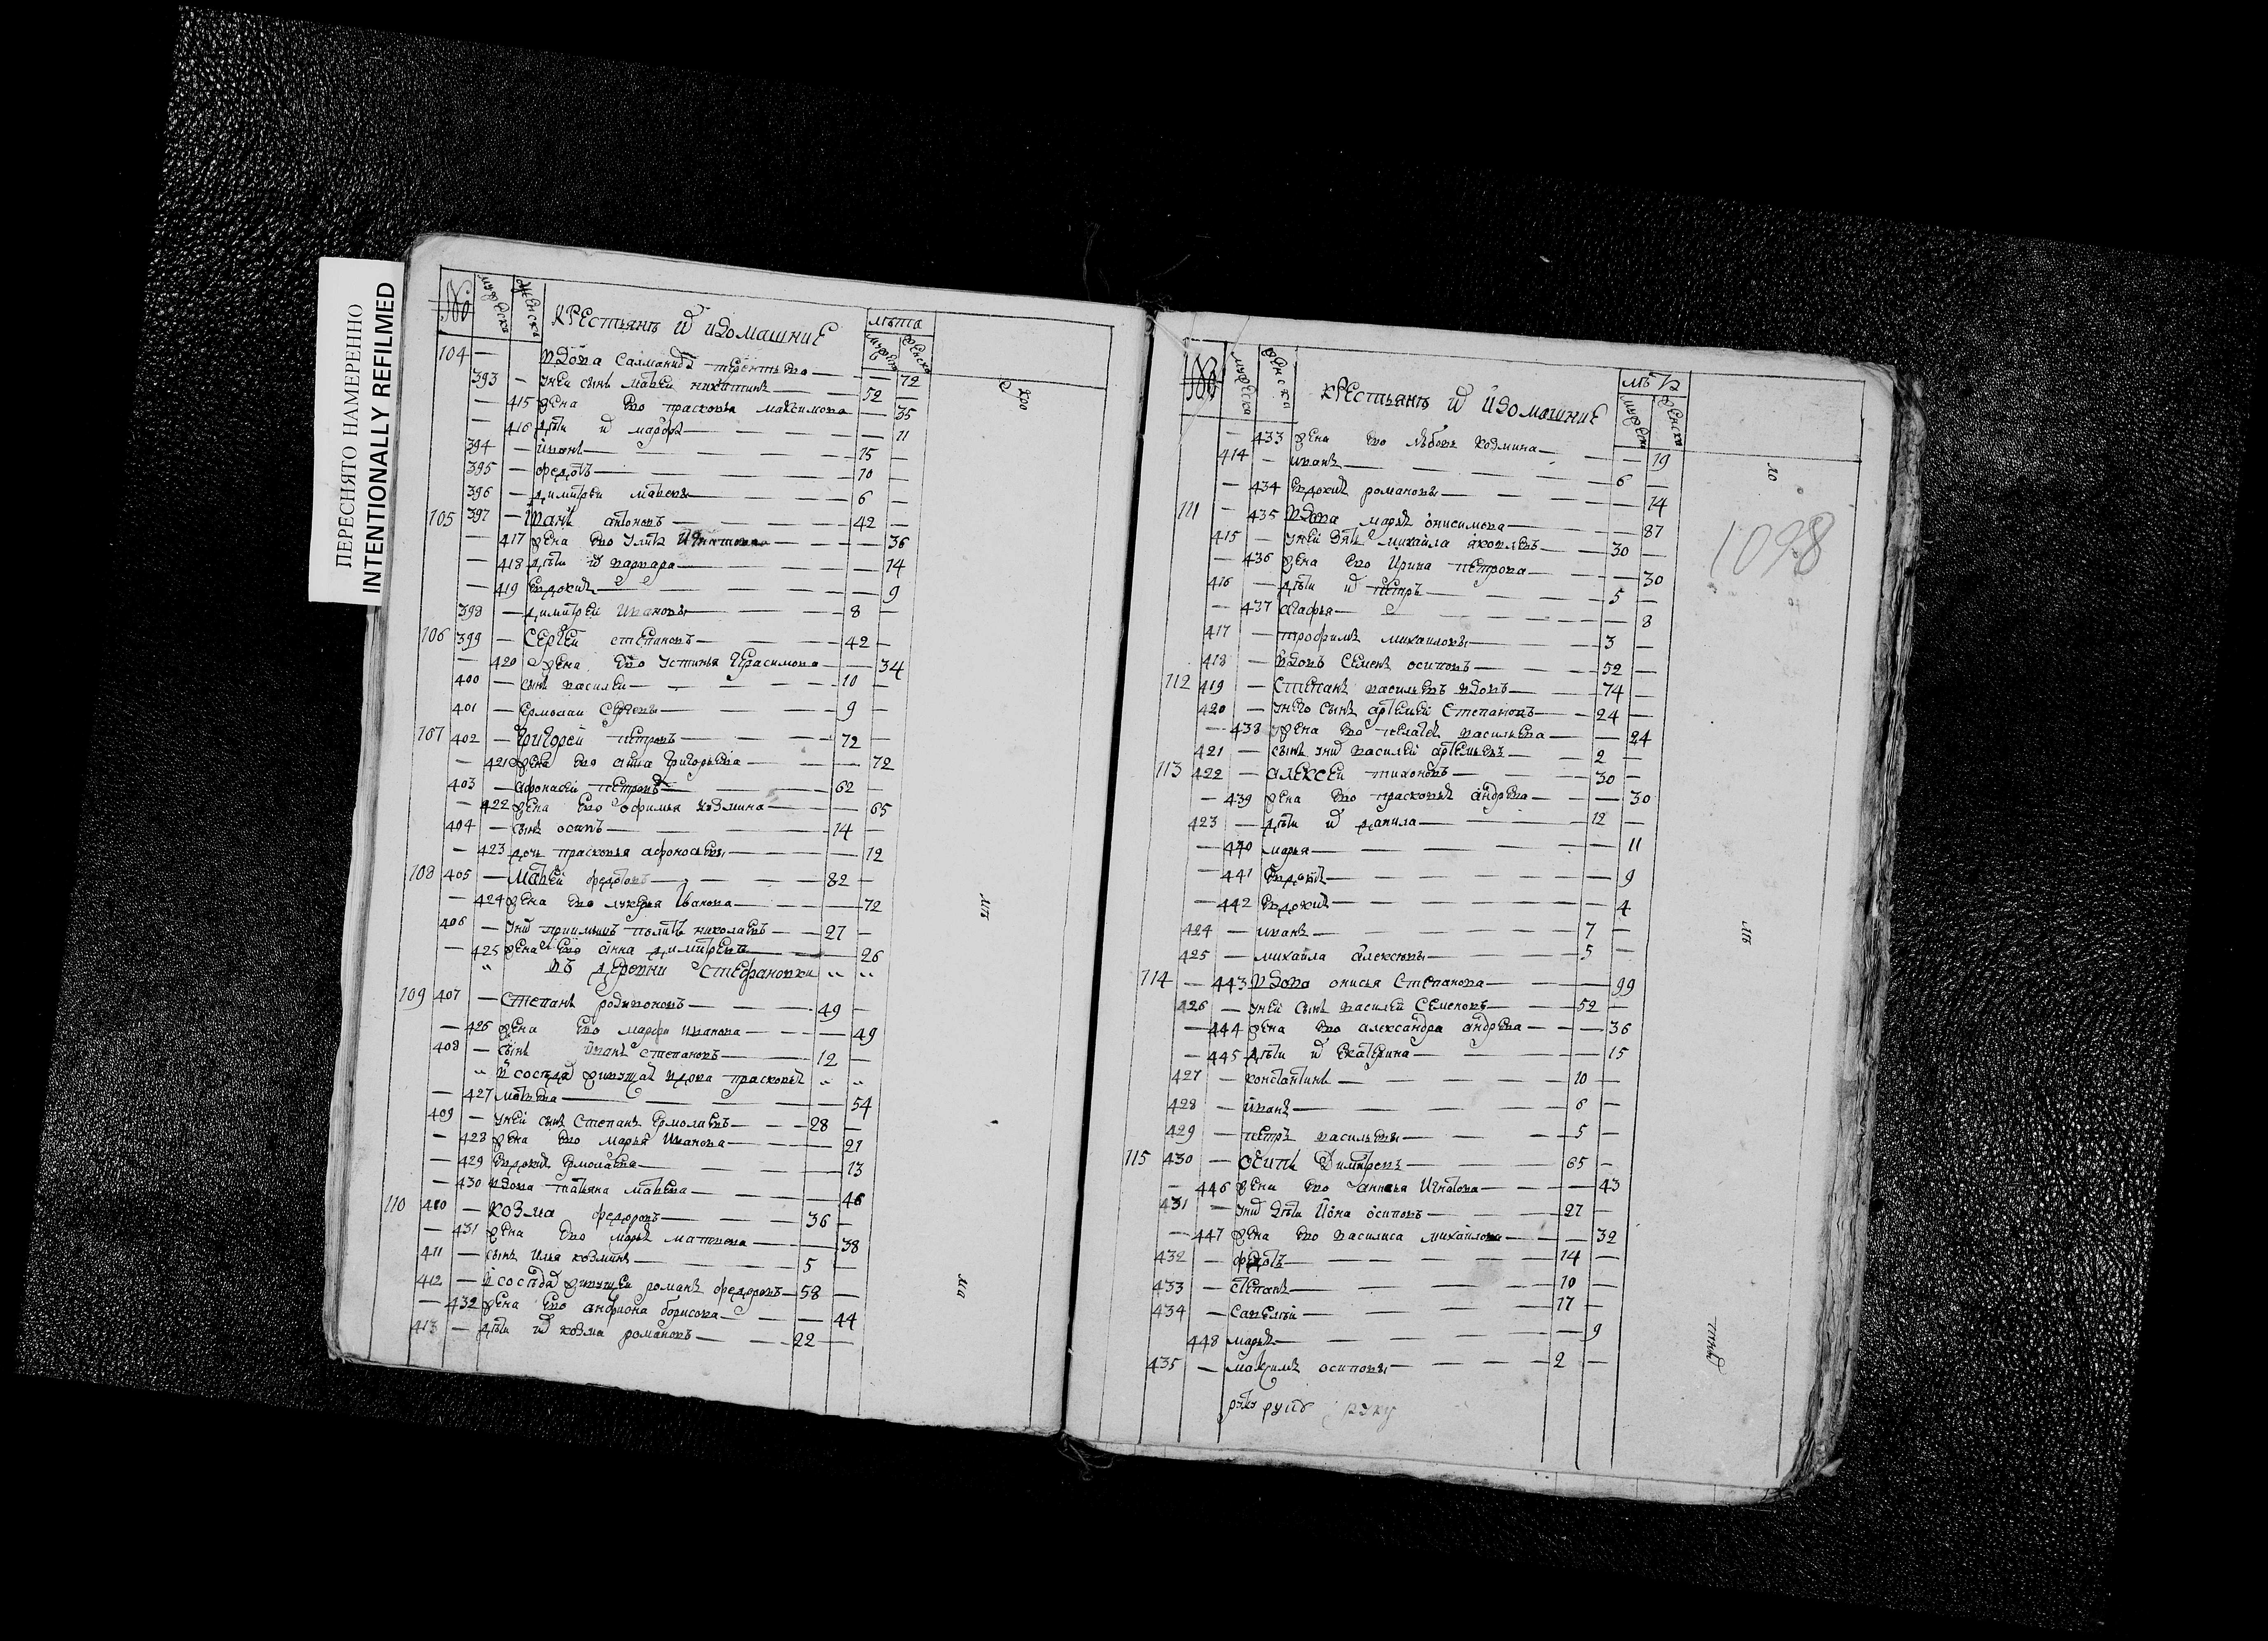 ПЕРЕСНЯТО НАМЕРЕННО
INTENTIONALLY REFILMED
крестьянъ и идомашние
лѣта
104 — вдова Саломанида терентьева — 72
393 — унеи сынъ матвеи никитинъ — 52 —
— 415 жена ево прасковья максимова — 35
— 416 дѣти ихъ марфа — 11
394 — иванъ — 15 —
395 — федотъ — 10 —
396 — димитреи матвевы — 6 —
105 397 — иванъ антоновъ — 42 —
— 417 жена ево улита игнатова — 36
— 418 дѣти ихъ варвара — 14
— 419 евдокия — 9
398 — димитреи ивановы — 8 —
106 399 — Сергеи степановъ — 42 —
— 420 жена ево устинья герасимова — 34
400 — сынъ василеи — 10 —
401 — ермолаи Сергевы — 9 —
107 402 — григореи петровъ — 72 —
— 421 жена ево анна григорьева — 72
403 — афонасеи петровъ — 62 —
— 422 жена ево офимья козмина — 65
404 — сынъ осипъ — 14 —
— 423 дочь прасковья афонасьевы — 12
108 405 — матвеи федотовъ — 82 —
— 424 жена ево лукерья иванова — 72
406 — унихъ приимышъ николаевъ — 27 —
— 425 жена ево анна димитрева — 26
въ деревни Стефановки
109 407 — Степанъ родивоновъ — 49 —
— 426 жена ево марфа иванова — 49
408 — сынъ иванъ степановъ — 12 —
в соседахъ живущая вдова прасковья
— 427 матвева — 54
409 — унеи сынъ Степанъ ермолаевъ — 28 —
— 428 жена ево марья иванова — 21
— 429 евдокия ермолаева — 13
— 430 вдова татьяна матвева — 46
110 410 — козма федоровъ — 36 —
— 431 жена ево марья матвева — 38
411 — сынъ илья козминъ — 5 —
412 — в соседахъ живущеи романъ федоровъ — 58 —
— 432 жена ево борисова — 44
413 — дѣти ихъ козма романовъ — 22 —
крестьянъ и идомашние
лѣта
1098
— 433 жена ево любовь козмина — 19
414 — иванъ — 6 —
— 434 евдокия романовы — 14
111 — 435 вдова марья онисимова — 87
415 — унеи зять михаила яковлевъ — 30 —
— 436 жена ево ирина петрова — 30
416 — дѣти ихъ петръ — 5 —
— 437 агафья — 8
417 — трофимъ михаиловы — 3 —
418 — вдовъ Семенъ осиповъ — 52 —
112 419 — Степанъ васильевъ вдовъ — 74 —
420 — унего сынъ артемеи Степановъ — 24 —
— 438 жена ево пелагея васильева — 24
421 — сынъ унихъ василеи артемьевъ — 2 —
113 422 — алексеи тихоновъ — 30 —
— 439 жена ево прасковья андрева — 30
423 — дѣти ихъ данила — 12 —
— 440 марья — 11
— 441 — 9
— 442 евдокия — 4
424 — иванъ — 7 —
425 — михаила алексевы — 5 —
114 — 443 вдова онисья Степанова — 99
426 — унеи сынъ василеи Семеновъ — 52 —
— 444 жена ево александра андрева — 36
— 445 дѣти ихъ екатерина — 15
427 — константинъ — 10 —
428 — иванъ — 6 —
429 — петръ васильевы — 5 —
115 430 — Осипъ димитревъ — 65 —
— 446 жена ево анисья игнатова — 43
431 — унихъ дѣти иона осиповъ — 27 —
— 447 жена ево василиса михаилова — 32
432 — федотъ — 14 —
433 — степанъ — 10 —
434 — Савелеи — 17 —
448 марья — 9
435 — максимъ осиповы — 2 —